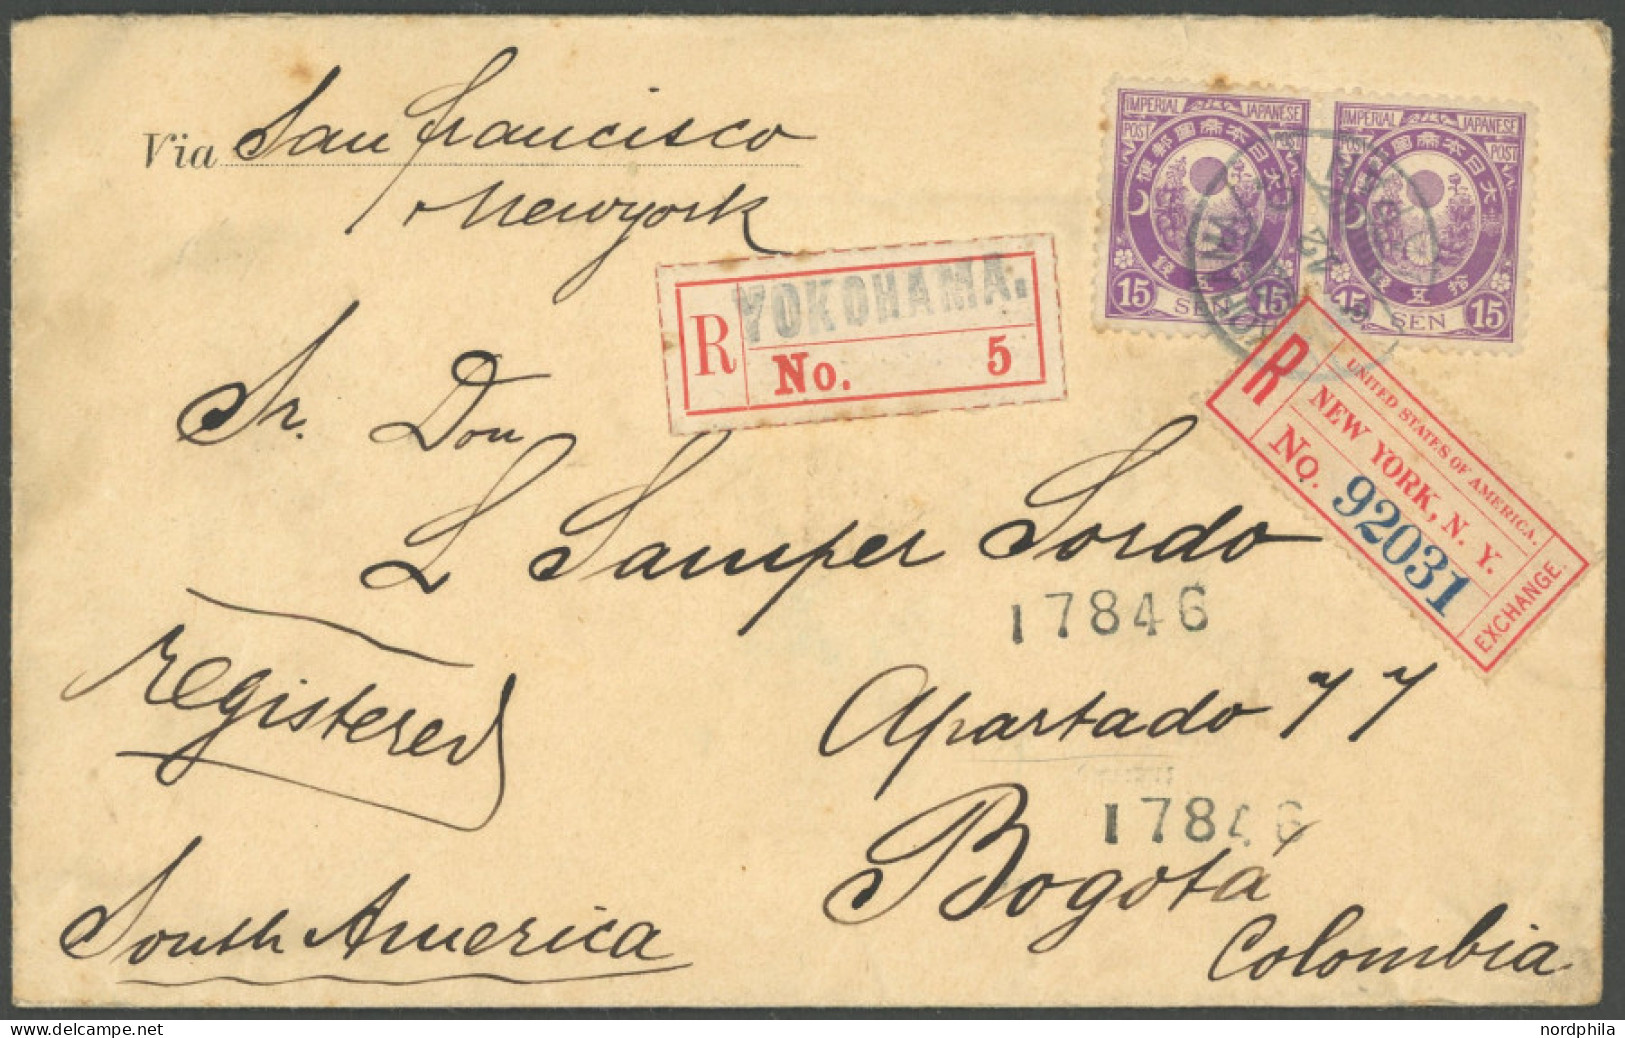 Via San Francisco
Newyork
IMPERIAL JAPANESE
POST POST
大日本帝國郵便
拾五錢
15 SEN 15
IMPERIAL JAPANESE
POST POST
大日本帝國郵便
拾五錢
15 SEN 15
R YOKOHAMA.
No. 5
R
UNITED STATES OF AMERICA.
NEW YORK, N. Y.
No. 92031
EXCHANGE.
Sr. Don
L Samper Sordo
17846
registered
Apartado 77
17846
Bogotá
South America
Colombia
nordphila